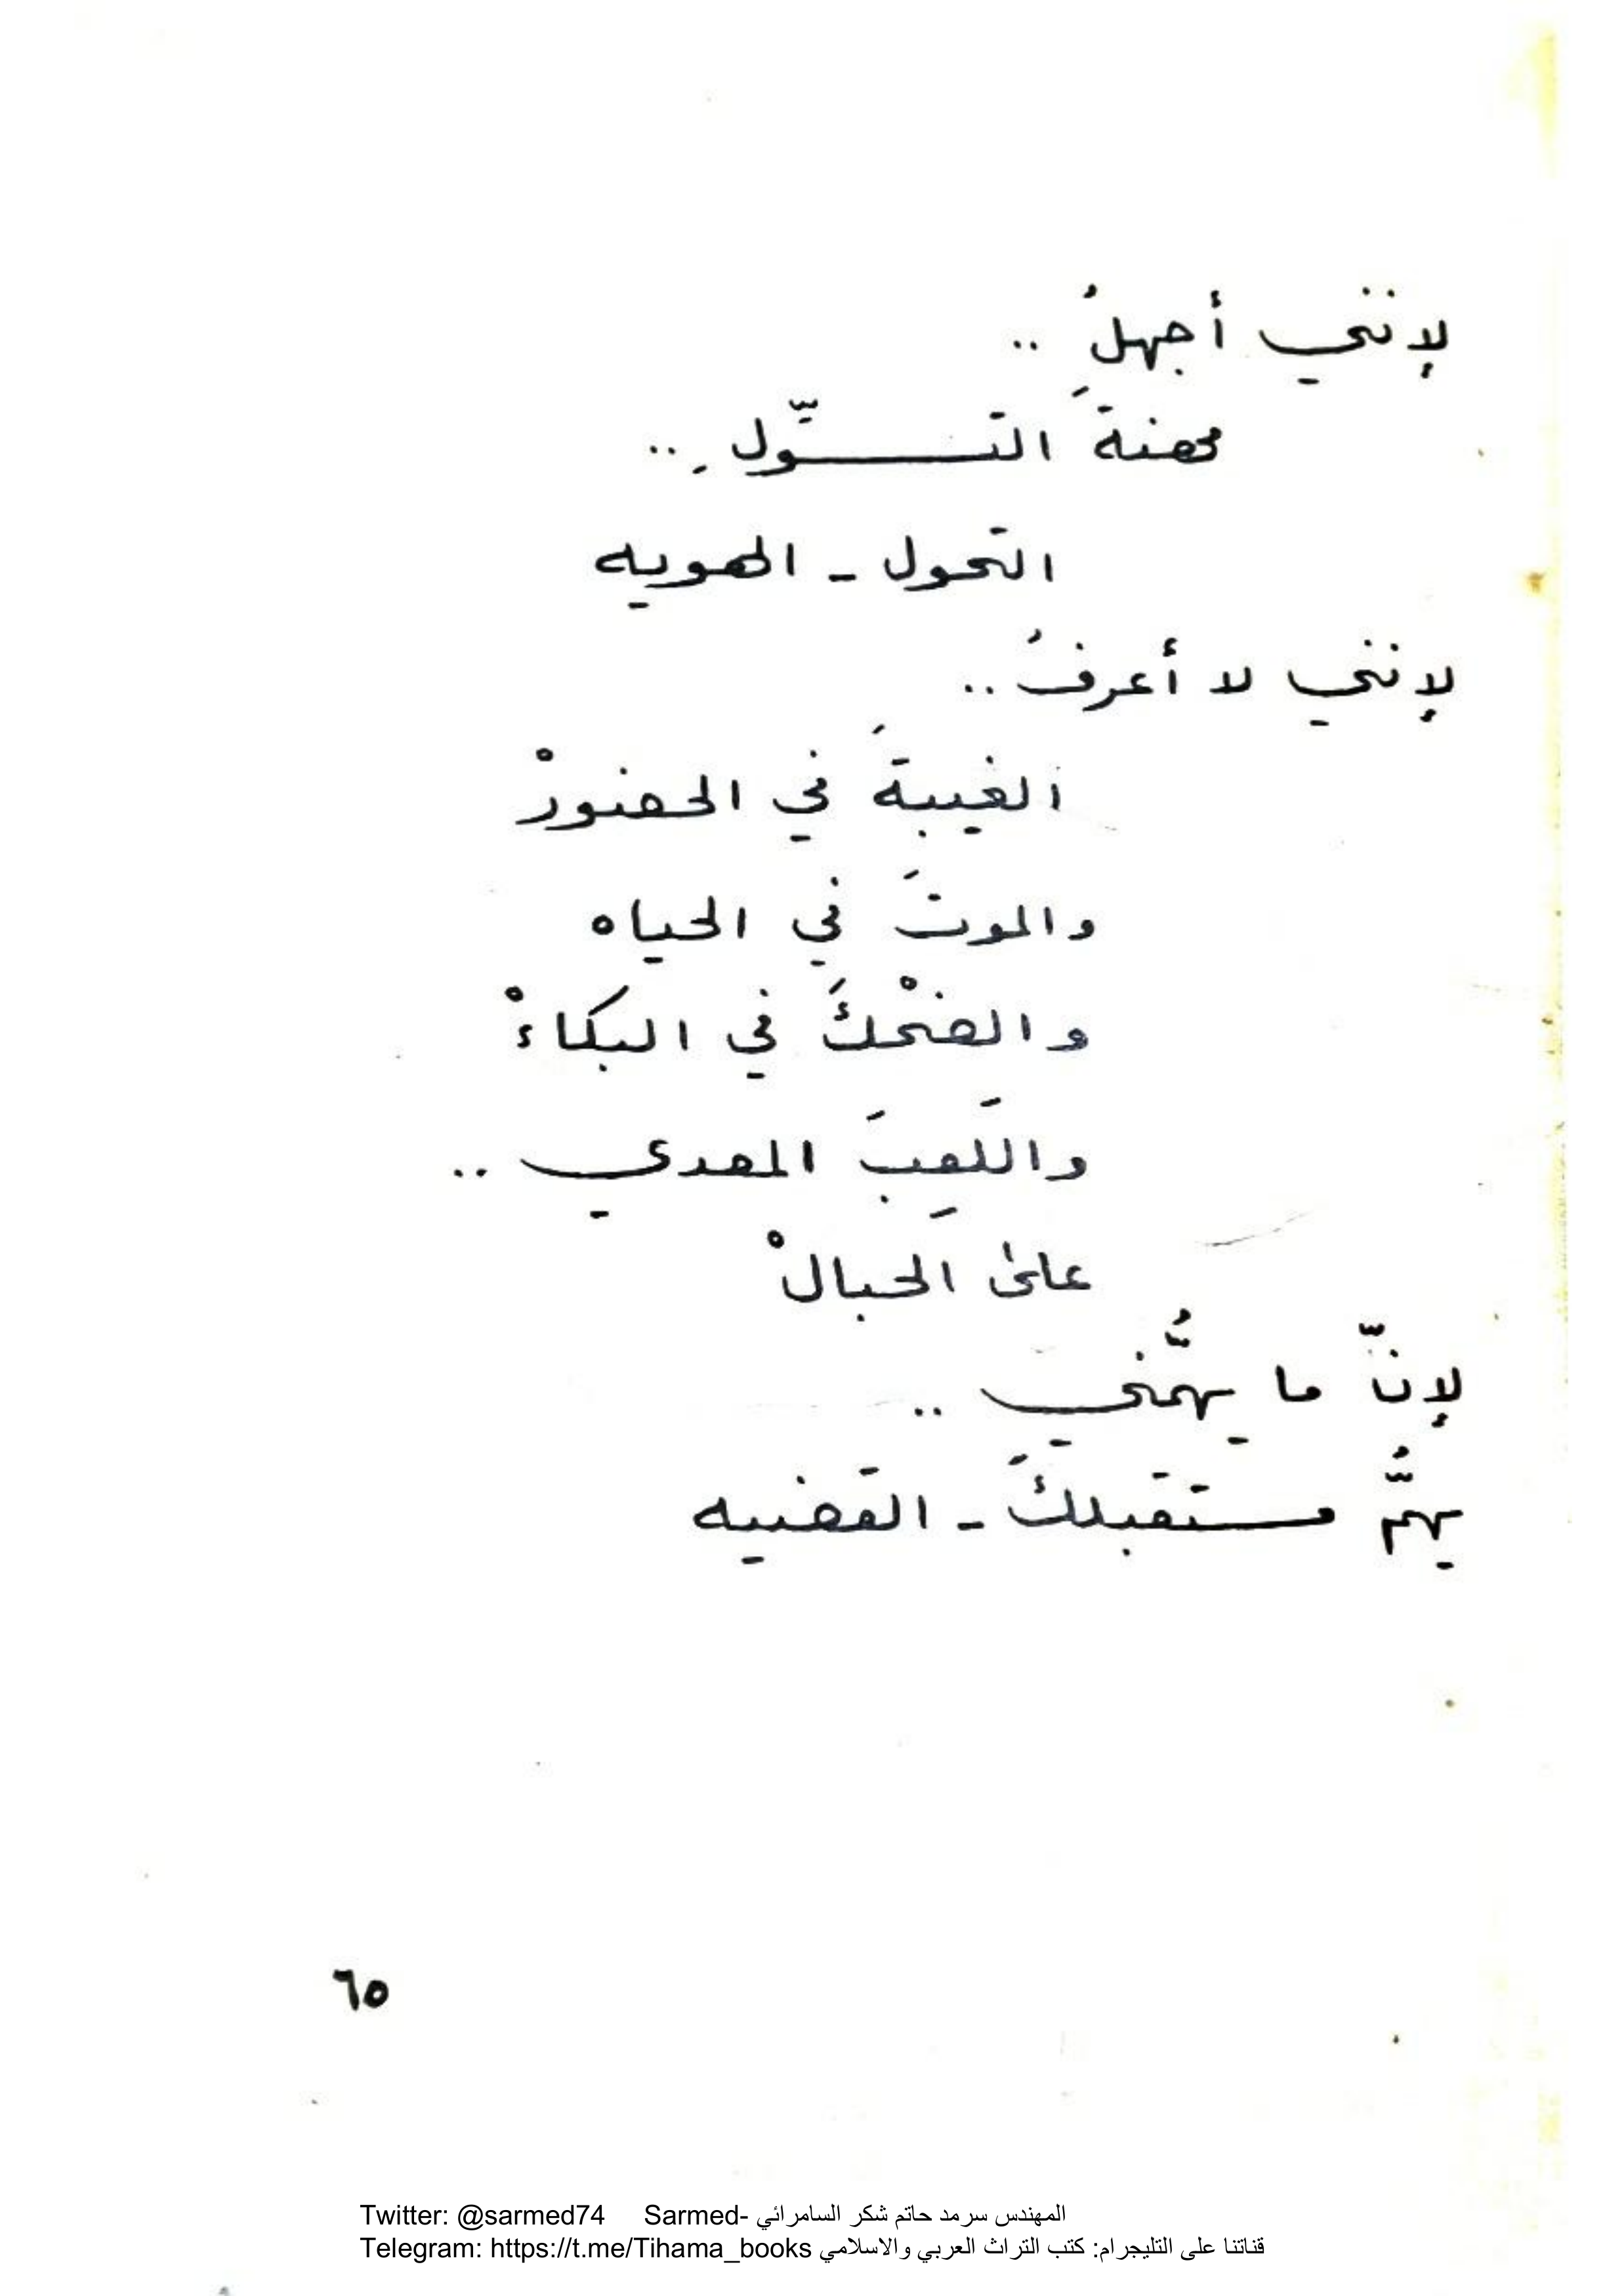 لإنني أجهلُ ..
مهنةَ التسوّلِ ..
التحول - الهويه
لإنني لا أعرفُ ..
الغيبةَ في الحضورْ
والموتَ في الحياه
والضحْكَ في البكاءْ
واللَعِبَ المعدي ..
على الحبالْ
لإنّ ما يهمُّني ..
يهمُّ مستقبلكَ - القضيه
٦٥
Twitter: @sarmed74 Sarmed- المهندس سرمد حاتم شكر السامرائي
Telegram: https://t.me/Tihama_books قناتنا على التليجرام: كتب التراث العربي والاسلامي